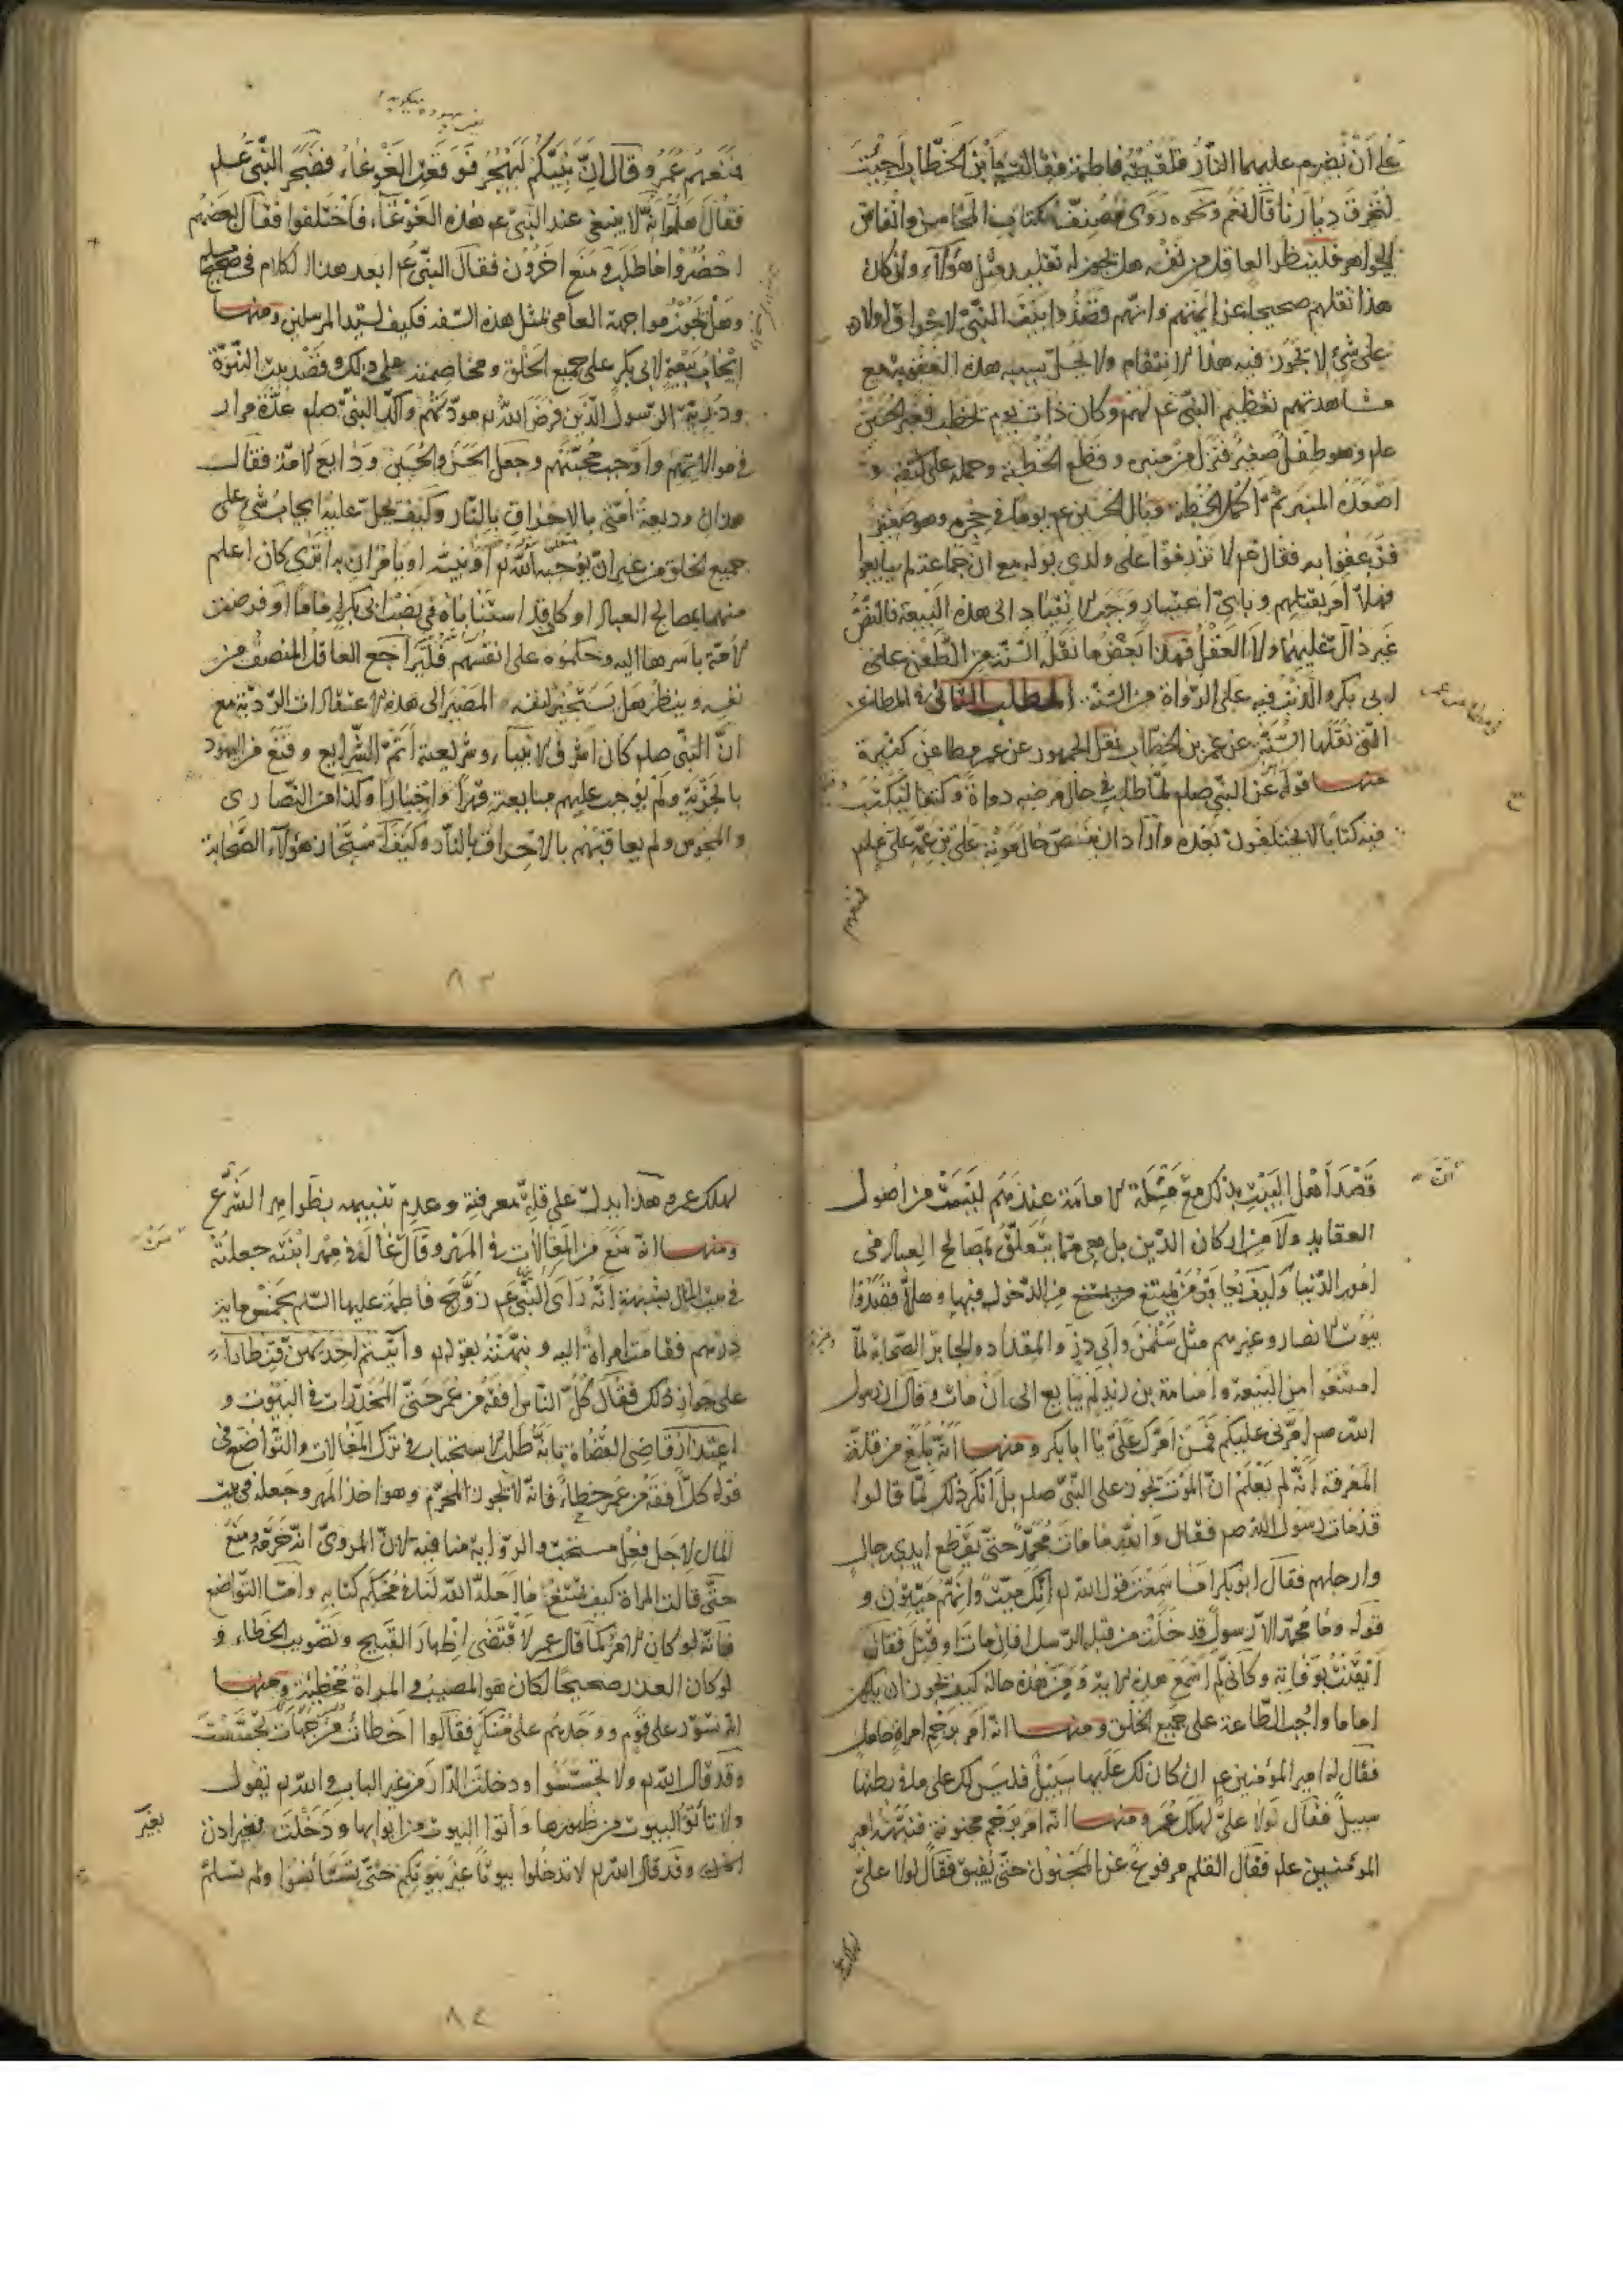 على ان يضرم عليهما النار فلقيته فاطمة فقالت يا ابن الخطاب اجئت
لتحرق ديارنا قال نعم ونحوه روى مصنف كتاب المحاسن وانفاس
الجواهر فلينظر العاقل من نفسه هل يجوز له تقليد مثل هؤلاء وان كان
هذا نقلهم صحيحا عن ائمتهم وانهم قصدوا بيت النبي لاحراق اولاده
على شئ لا يجوز فيه هذا الانتقام ولا يحل بسببه هذه العقوبة مع
مشاهدتهم تعظيم النبي عم لهم وكان ذات يوم يخطب فعبر الحسين
علم وهو طفل صغير فنزل من منبره وقطع الخطبة وحمله على كتفه و
اصعده المنبر ثم اكمل الخطبة وبال الحسين عم يوما في حجره وهو صغير
فزعقوا به فقال عم لا تزرموا على ولدي بوله مع ان جماعة لم يبايعوا
فهلا امر بقتلهم وباي اعتبار وجب الانقياد الى هذه البيعة فالنص
غير دال عليها ولا العقل فهذا بعض ما نقله السنة من الطعن على
ابي بكر والذنب فيه على الرواة من السنة المطلب الثاني في المطاعن
التي نقلها السنة عن عمر بن الخطاب نقل الجمهور عن عمر مطاعن كثيرة
منها قوله عن النبي صلم لما طلب في حال مرضه دواة وكتفا ليكتب
فيه كتابا لا يختلفون بعده واراد ان ينص حال موته على ابن عمه على علم
فمنعهم
فمنعهم عمر وقال ان نبيكم ليهجر فوقعت الغوغاء فضجر النبي علم
فقال اهله انه لا ينبغي عند النبي عم هذه الغوغاء فاختلفوا فقال بعضهم
احضروا ما طلب ومنع اخرون فقال النبي عم ابعدوا هذا الكلام في صحيح مسلم
وهل يجوز مواجهة العامي بمثل هذه السفه فكيف لسيد المرسلين ومنها
ايجاب بيعة لابي بكر على جميع الخلق ومخاصمته على ذلك وقصد بيت النبوة
وذرية الرسول الذين فرض الله مودتهم واكد النبي صلم عدة مرار
في موالاتهم واوجب محبتهم وجعل الحسن والحسين ودايع الامة فقال
هذان وديعة امتي بالاحراق بالنار وكيف يحل عليه ايجاب شئ على
جميع الخلق من غير ان يوجبه الله او نبيه او يامران به اترى كان اعلم
منهما بمصالح العباد او كان قد استناباه في نصب ابي بكر اماما او فوضت
الامة باسرها اليه وحكموه على انفسهم فليراجع العاقل المنصف من
نفسه وينظر هل يستجيز لنفسه المصير الى هذه الاعتقادات الردية مع
ان النبي صلم كان اشرف الانبياء وشريعته اتم الشرايع وقنع من اليهود
بالجزية ولم يوجب عليهم متابعته قهرا واجبارا وكذا من النصارى
والمجوس ولم يعاقبهم بالاحراق بالنار وكيف استجاز هؤلاء الصحابة
٨٣
قصد اهل البيت بذلك مع ان مسئلة الامامة عندهم ليست من اصول
العقايد ولا من اركان الدين بل هي مما يتعلق بمصالح العباد في
امور الدنيا وكيف يعاقب من يمتنع من الدخول فيها وهلا قصدوا
بيوت الانصار وغيرهم مثل سلمن وابي ذر والمقداد واكابر الصحابة لما
امتنعوا من البيعة واسامة بن زيد لم يبايع الى ان مات وقال ان رسول
الله صم امرني عليكم فمن امرك علي يا ابا بكر ومنها انه بلغ من قلة
المعرفة انه لم يعلم ان الموت يجوز على النبي صلم بل انكر ذلك لما قالوا
قد مات رسول الله صم فقال والله ما مات محمد حتى يقطع ايدي رجال
وارجلهم فقال ابو بكر اما سمعت قول الله انك ميت وانهم ميتون و
قوله وما محمد الا رسول قد خلت من قبله الرسل افان مات او قتل فقال
ايقنت بوفاته وكاني لم اسمع هذه الاية ومن هذه حاله كيف يجوز ان يكون
اماما واجب الطاعة على جميع الخلق ومنها انه امر برجم امراة حامل
فقال له امير المؤمنين عم ان كان لك عليها سبيل فليس لك على ما في بطنها
سبيل فقال لولا علي لهلك عمر ومنها انه امر برجم مجنونة فنبهه امير
المؤمنين علم فقال القلم مرفوع عن المجنون حتى يفيق فقال لولا علي
لهلك
لهلك عمر وهذا يدل على قلة معرفته وعدم تنبيهه بظواهر الشرع
ومنها انه منع من المغالات في المهر وقال من غالى في مهر ابنته جعلته
في بيت المال بشبهة انه راى النبي عم زوج فاطمة عليها السلم بخمسماية
درهم فقامت امراة اليه ونبهته بقوله واتيتم احديهن قنطارا
على جواز ذلك فقال كل الناس افقه من عمر حتى المخدرات في البيوت و
اعتذار قاضي القضاة بانه طلب الاستحباب في ترك المغالات والتواضع في
قوله كل افقه من عمر خطاء فانه لا يجوز المحرم وهو اخذ المهر وجعله في بيت
المال لاجل فعل مستحب والرواية منافية لان المروي انه حرمه ومنع
حتى قالت المراة كيف تمنعنا ما احله الله لنا في محكم كتابه واما التواضع
فانه لو كان الامر كما قال عمر لاقتضى اظهار القبيح وتصويب الخطاء و
لو كان العذر صحيحا لكان هو المصيب والمراة مخطئة ومنها
انه تسور على قوم ووجدهم على منكر فقالوا اخطات من جهات تجسست
وقد قال الله ولا تجسسوا ودخلت الدار من غير الباب والله يقول
ولا تاتوا البيوت من ظهورها واتوا البيوت من ابوابها ودخلت بغير اذن
وقد قال الله لا تدخلوا بيوتا غير بيوتكم حتى تستانسوا ولم تسلم
بغير
٨٤